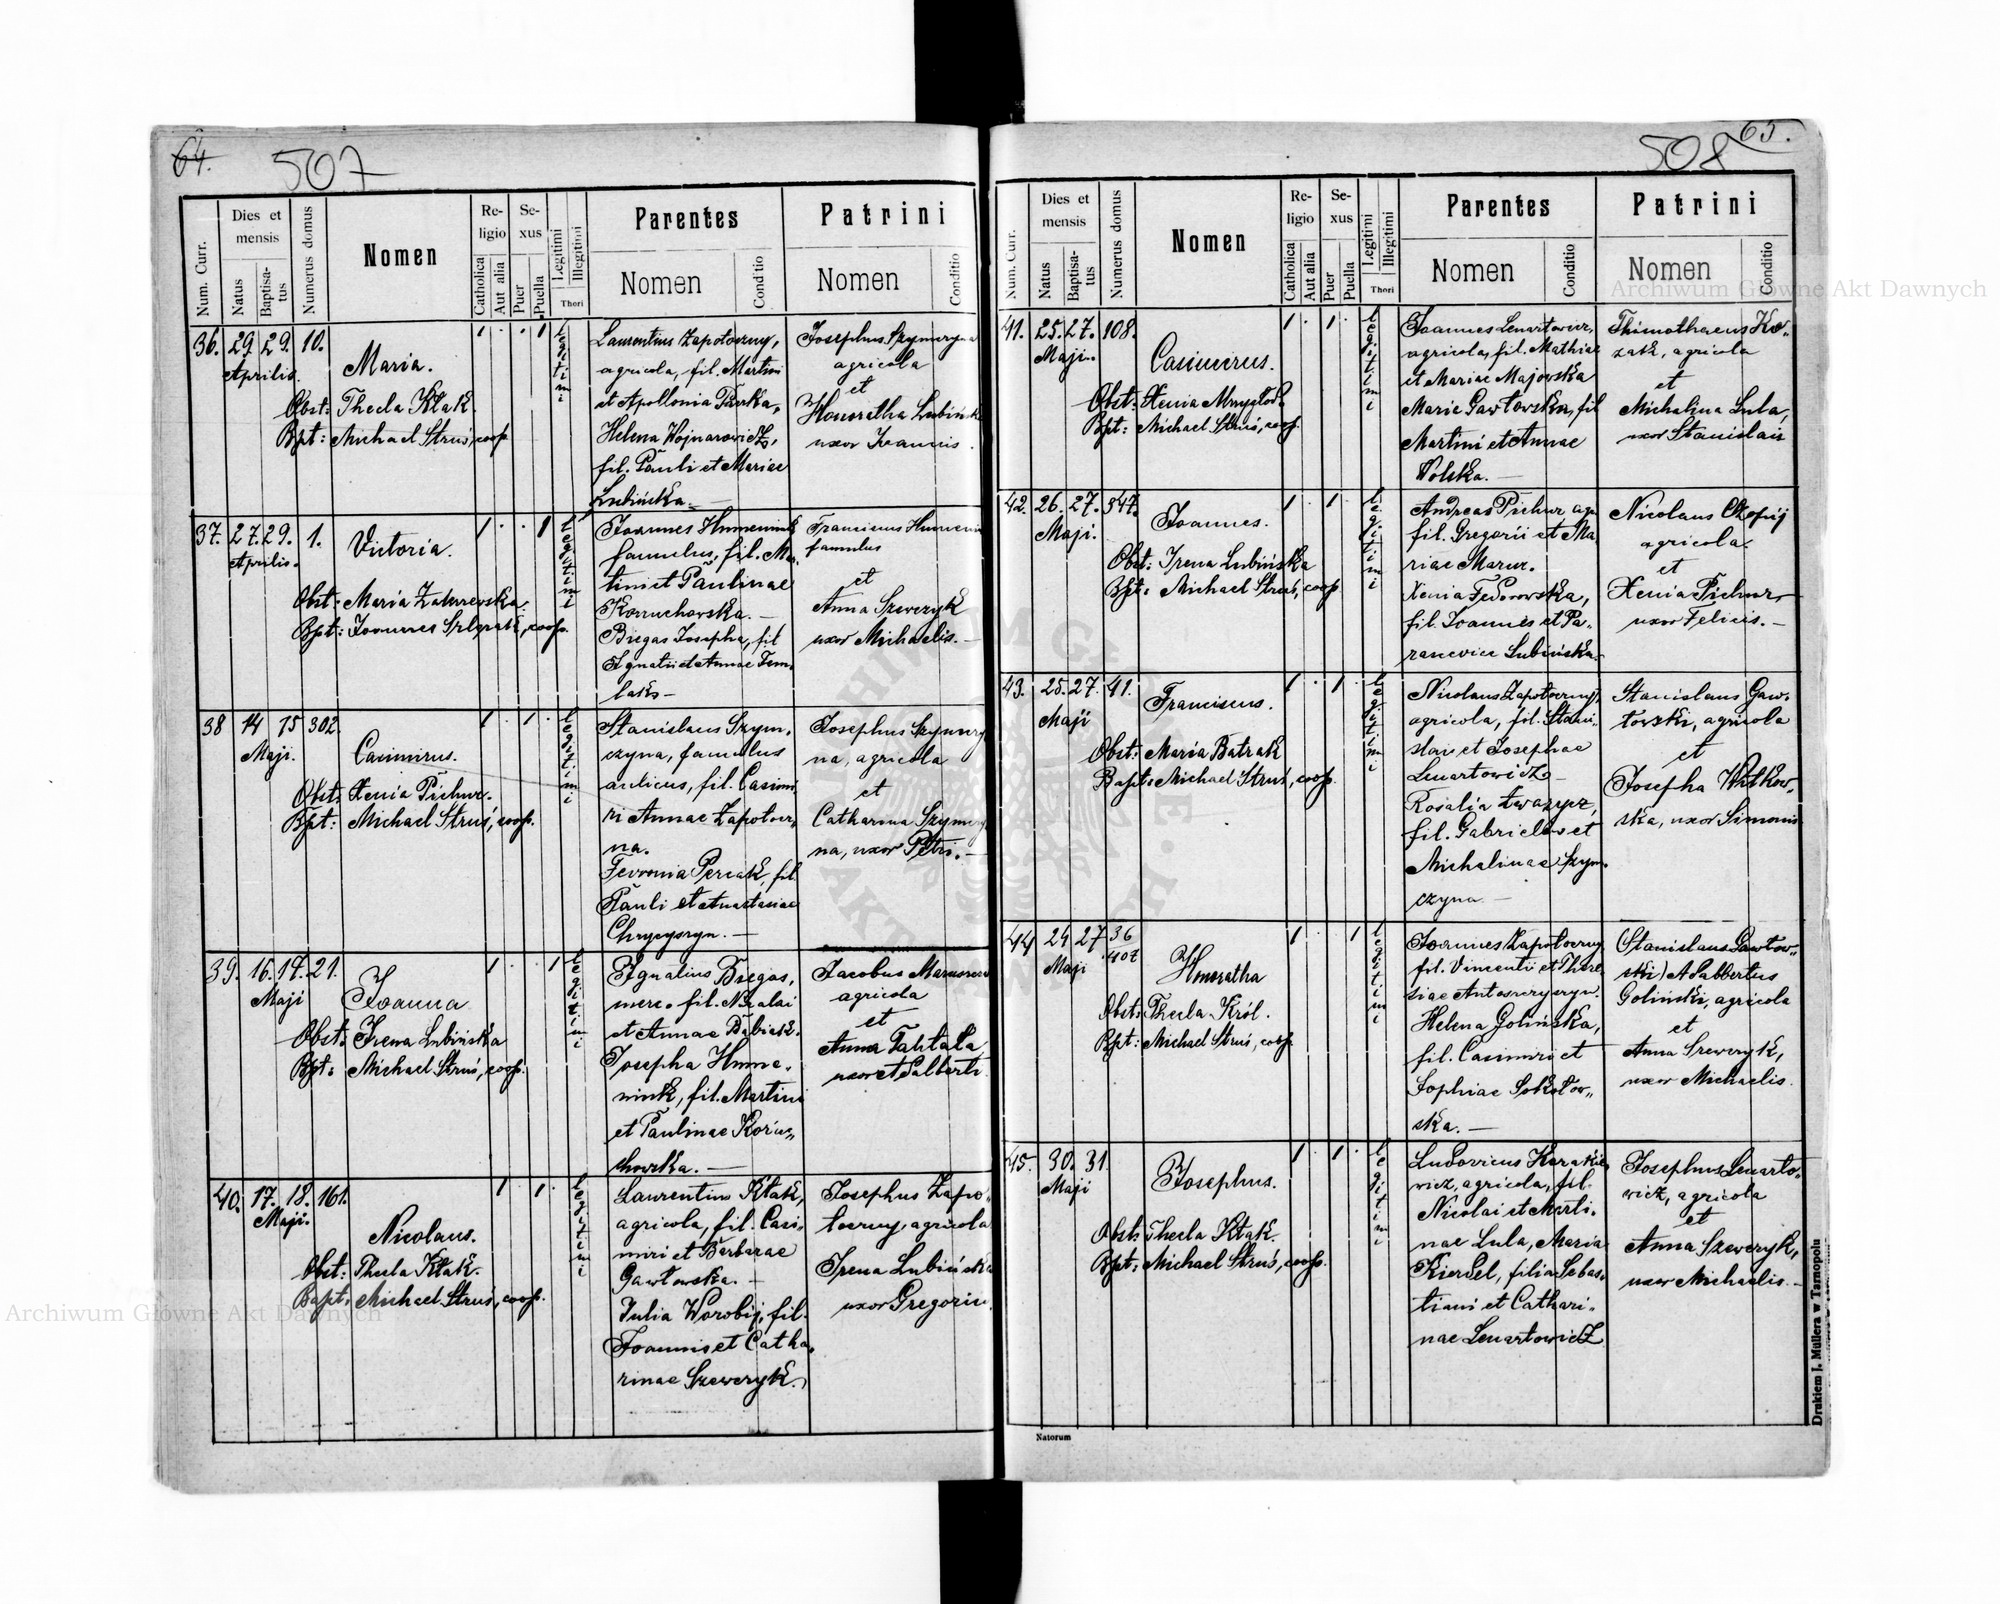 64.
507
Num. Curr.
Dies et mensis
Natus
Baptisatus
Numerus domus
Nomen
Religio
Catholica
Aut alia
Sexus
Puer
Puella
Legitimi
Illegitimi
Thori
Parentes
Nomen
Conditio
Patrini
Nomen
Conditio
36. 29. 29. 10.
Aprilis.
Maria.
Obst: Thecla Kłak.
Bpt: Michael Struś, coop.
1 1
legitimi
Laurentius Zapotoczny,
agricola, fil. Martini
et Apollonia
Helena Wojnarowicz,
fil. Pauli et Mariae
Lubińska.
Josephus Szymczyna
agricola
et
Honoratha Lubińska
uxor Ioannis.
37. 27. 29. 1.
Aprilis.
Victoria.
Obst: Maria Zakrzewska.
Bpt: Ioannes coop.
1 1
legitimi
Ioannes Humeniuk
famulus, fil. Mar
tini et Paulinae
Koruchowska.
Biegas Josepha, fil
Ignatii et Annae
Franciscus Humeniu
famulus
et
Anna Szewczyk
uxor Michaelis.
38 14 15 302.
Maji.
Casimirus.
Obst: Xenia Pichur.
Bpt: Michael Struś, coop.
1 1
legitimi
Stanislaus Szym,
czyna, famulus
aulicus, fil. Casimi
ri Annae Zapotocz,
na.
Fevronia Percak, fil
Pauli et Anastasiae
Chrycyszyn.
Josephus Szymczy
na, agricola
et
Catharina Szymczy
na, uxor Petri.
39. 16. 17. 21.
Maji
Ioanna
Obst: Irena Lubińska
Bpt: Michael Struś, coop.
1 1
legitimi
Ignatius Biegas,
merc. fil. Nicolai
et Annae Babiak.
Josepha Hume,
niuk, fil. Martini
et Paulinae Korus,
chowska.
Jacobus
agricola
et
Anna Tahtala
uxor Adalberti
40. 17. 18. 161.
Maji.
Nicolaus.
Obst: Thecla Kłak.
Bapt: Michael Struś, coop.
1 1
legitimi
Laurentius Kłak,
agricola, fil. Casi,
miri et Barbarae
Gawłowska.
Julia Worobij, fil.
Ioannis et Catha,
rinae Szewczyk.
Josephus Zapo,
toczny, agricola
Irena Lubińska
uxor Gregorii.
65.
508
Num. Curr.
Dies et mensis
Natus
Baptisatus
Numerus domus
Nomen
Religio
Catholica
Aut alia
Sexus
Puer
Puella
Legitimi
Illegitimi
Thori
Parentes
Nomen
Conditio
Patrini
Nomen
Conditio
41. 25. 27. 108.
Maji.
Casimirus.
Obst: Xenia
Bpt: Michael Struś, coop.
1 1
legitimi
Ioannes Lenartowicz,
agricola, fil. Mathiae
et Mariae Majowska
Maria Gawłowska, fil
Martini et Annae
Wolska.
Thimothaeus Ko,
zak, agricola
et
Michalina Lula,
uxor Stanislai
42. 26. 27. 347.
Maji.
Ioannes.
Obst: Irena Lubińska
Bpt: Michael Struś, coop
1 1
legitimi
Andreas Pichur agr.
fil. Gregorii et Ma
riae Mazur.
Xenia Fedorowska,
fil. Ioannes et Pa,
rascevia Lubińska.
Nicolaus Czopij
agricola.
et
Xenia Pichur,
uxor Felicis.
43. 25. 27. 41.
Maji
Franciscus.
Obst: Maria Batrak
Bapt: Michael Struś, coop.
1 1
legitimi
Nicolaus Zapotoczny,
agricola, fil. Stani,
slai et Josephae
Lenartowicz
Rosalia
fil. Gabrielis et
Michalinae Szym,
czyna
Stanislaus Gaw,
łowski, agricola
et
Josepha Witkow,
ska, uxor Simonis
44 24 27 36
402
Maji
Honoratha
Obst: Thecla Król.
Bpt: Michael Struś, coop.
1 1
legitimi
Ioannes Zapotoczny
fil. Vincentii et There,
siae Antoszczyszyn.
Helena Golińska,
fil. Casimiri et
Sophiae Sokołow,
ska.
(Stanislaus Gawłow,
ski) Adalbertus
Goliński, agricola
et
Anna Szewczyk,
uxor Michaelis.
45. 30. 31.
Maji
Josephus.
Obst: Thecla Kłak.
Bpt: Michael Struś, coop.
1 1
legitimi
Ludovicus Karakie
wicz, agricola, fil.
Nicolai et Marti,
nae Lula, Maria
Kierdel, filia Sebas,
tiani et Cathari,
nae Lenartowicz
Josephus Lenarto,
wicz, agricola
et
Anna Szewczyk,
uxor Michaelis.
Natorum
Drukiem J. Mullera w Tarnopolu
Archiwum Główne Akt Dawnych
Archiwum Główne Akt Dawnych